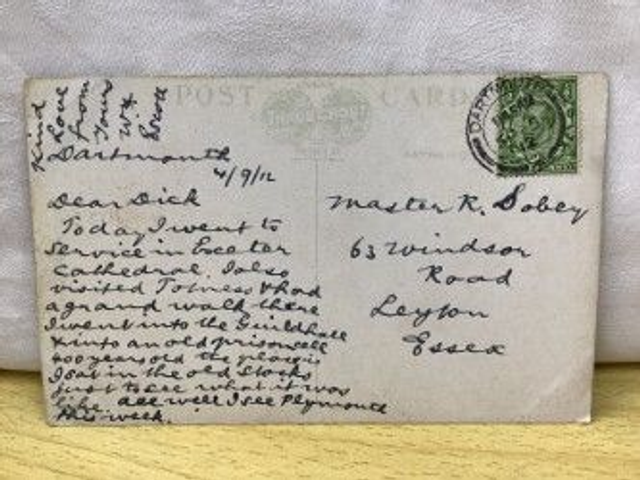 POST CARD
Kind
love
from
Your
Dartmouth
4/9/12
Dear Dick
Today I went to
service in Exeter
Cathedral. I also
visited Totness & had
a grand walk there
I went into the Guildhall
& into an old prison cell
400 years old the place is
I sat in the old stocks
just to see what it was
like. All well I see Plymouth
this week.
DARTMOUTH
Master R. Sobey
63 Windsor
Road
Leyton
Essex